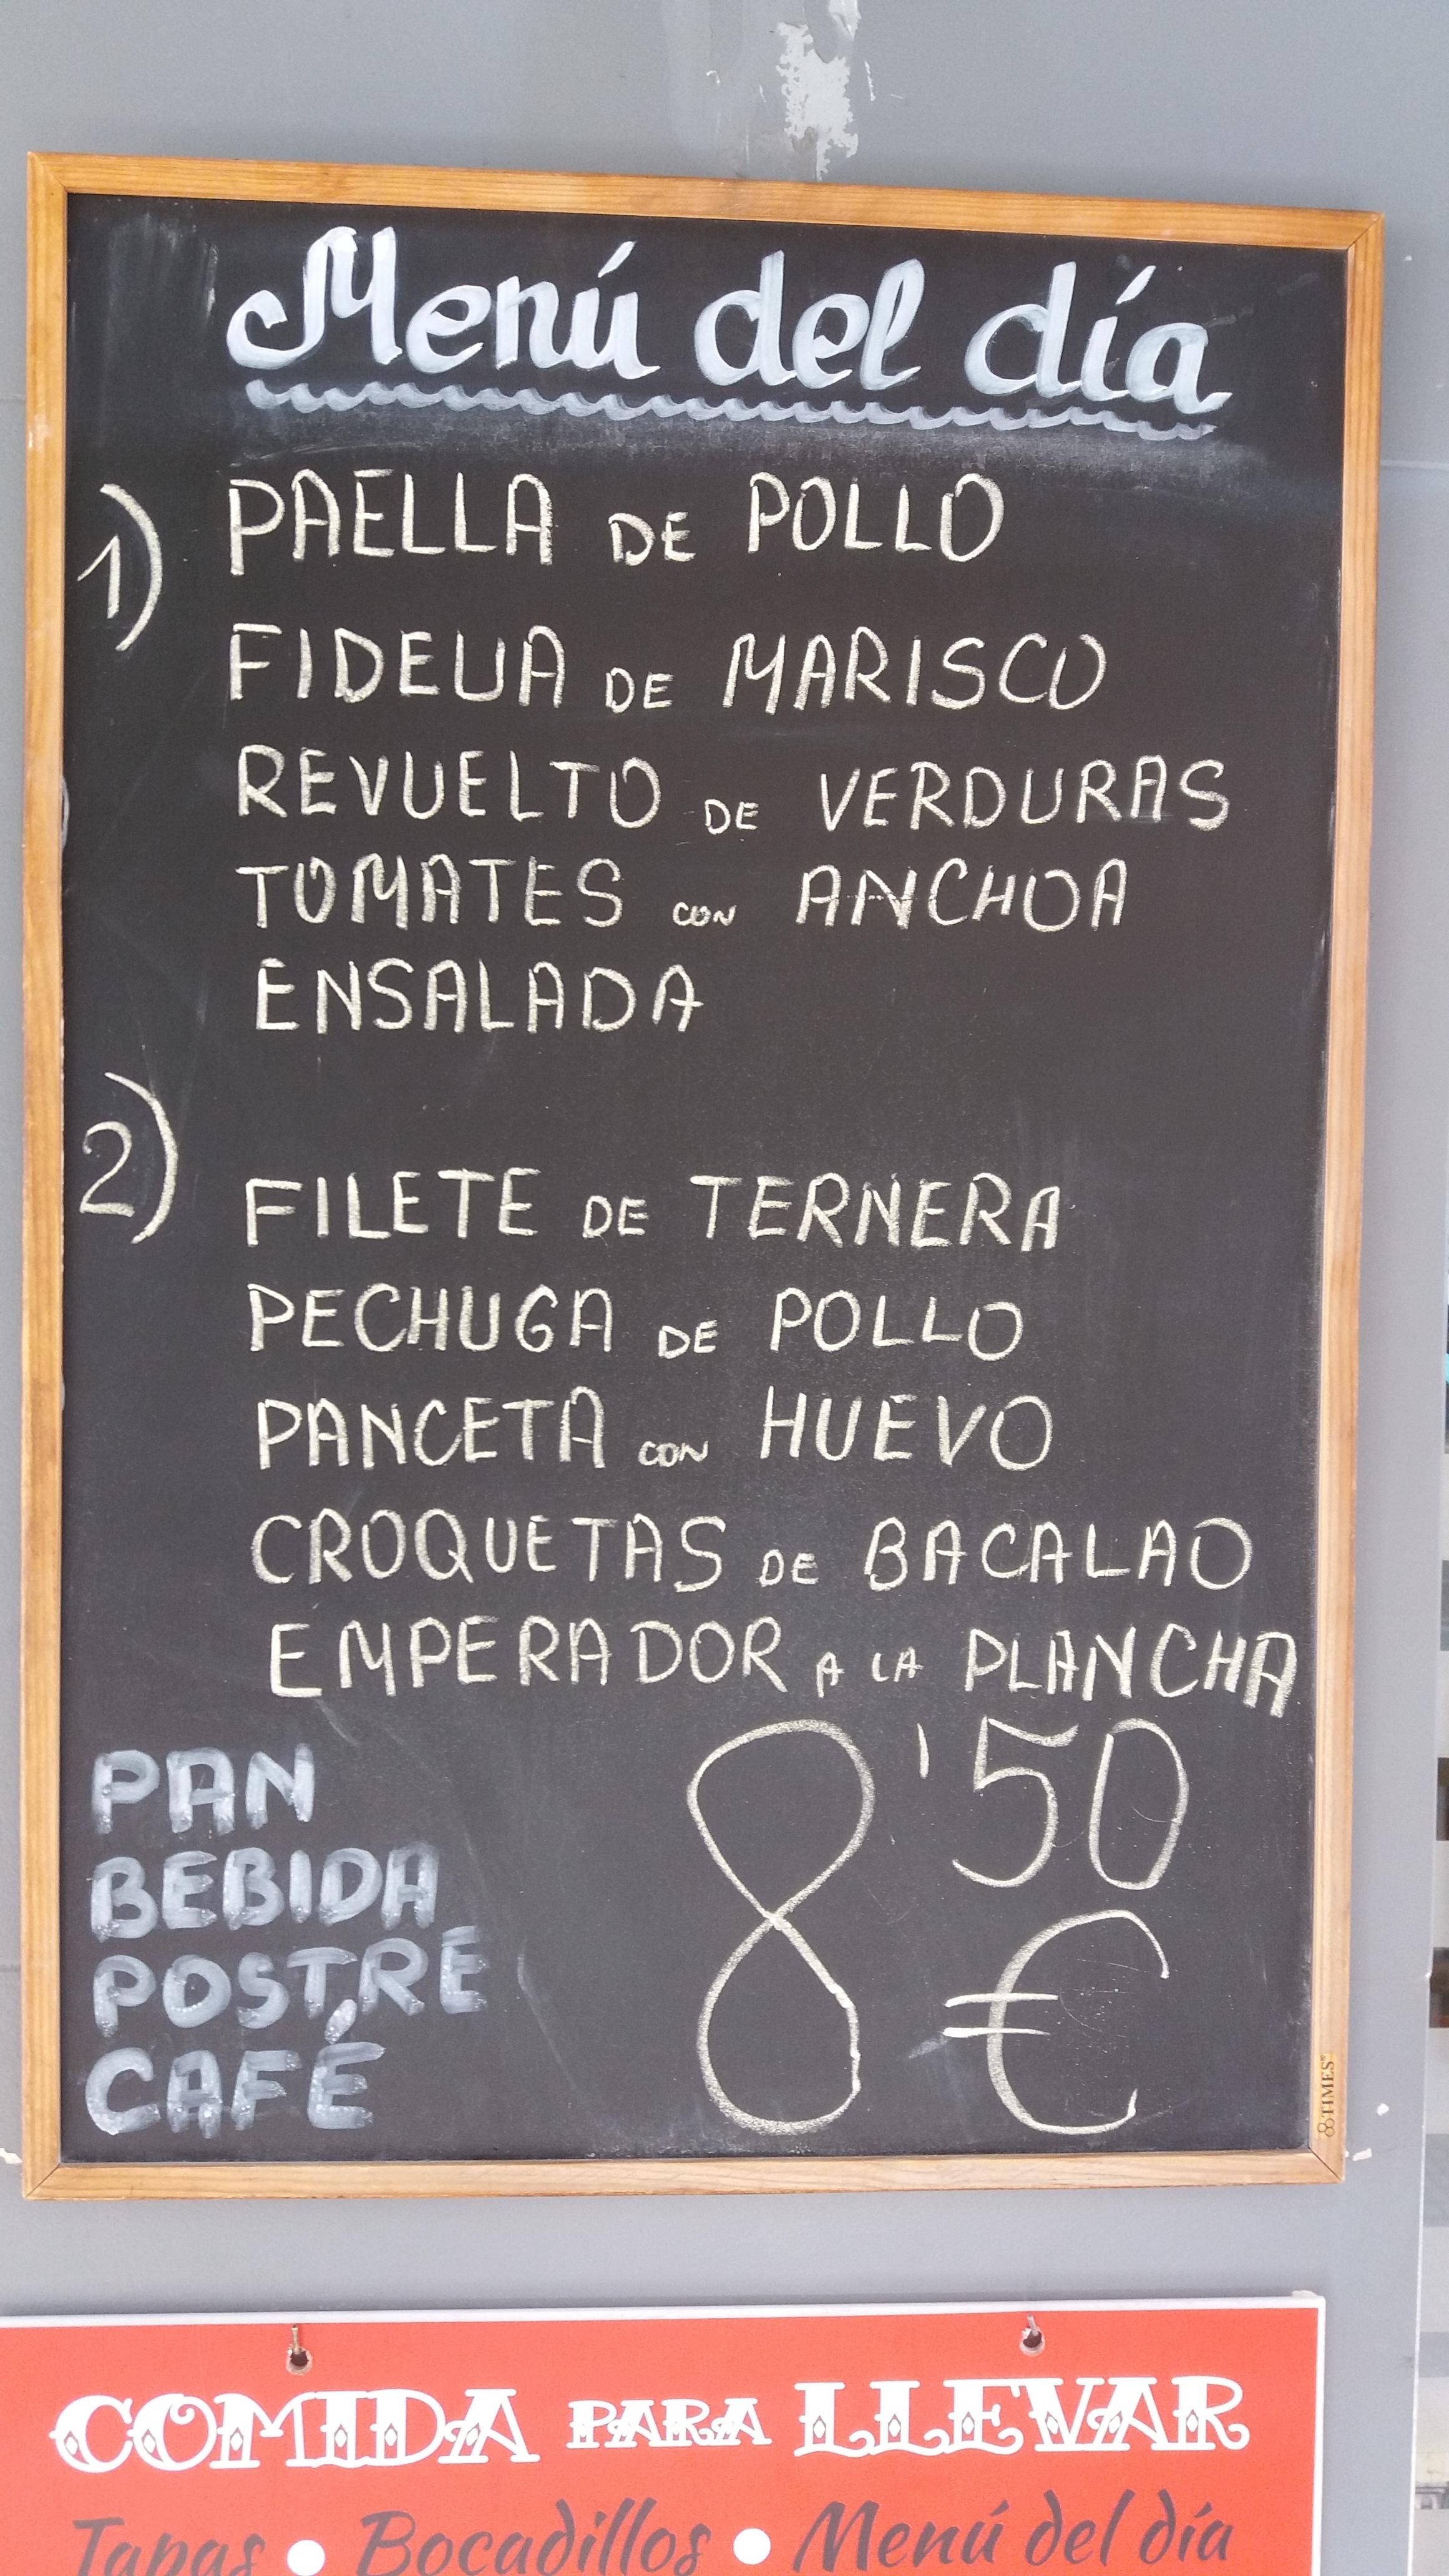 Menú del día
1) PAELLA DE POLLO
FIDEUA DE MARISCO
REVUELTO DE VERDURAS
TOMATES CON ANCHOA
ENSALADA
2) FILETE DE TERNERA
PECHUGA DE POLLO
PANCETA CON HUEVO
CROQUETAS DE BACALAO
EMPERADOR A LA PLANCHA
PAN
BEBIDA
POSTRE
CAFÉ
8'50
€
8TIMES
COMIDA PARA LLEVAR
Tapas • Bocadillos • Menú del día